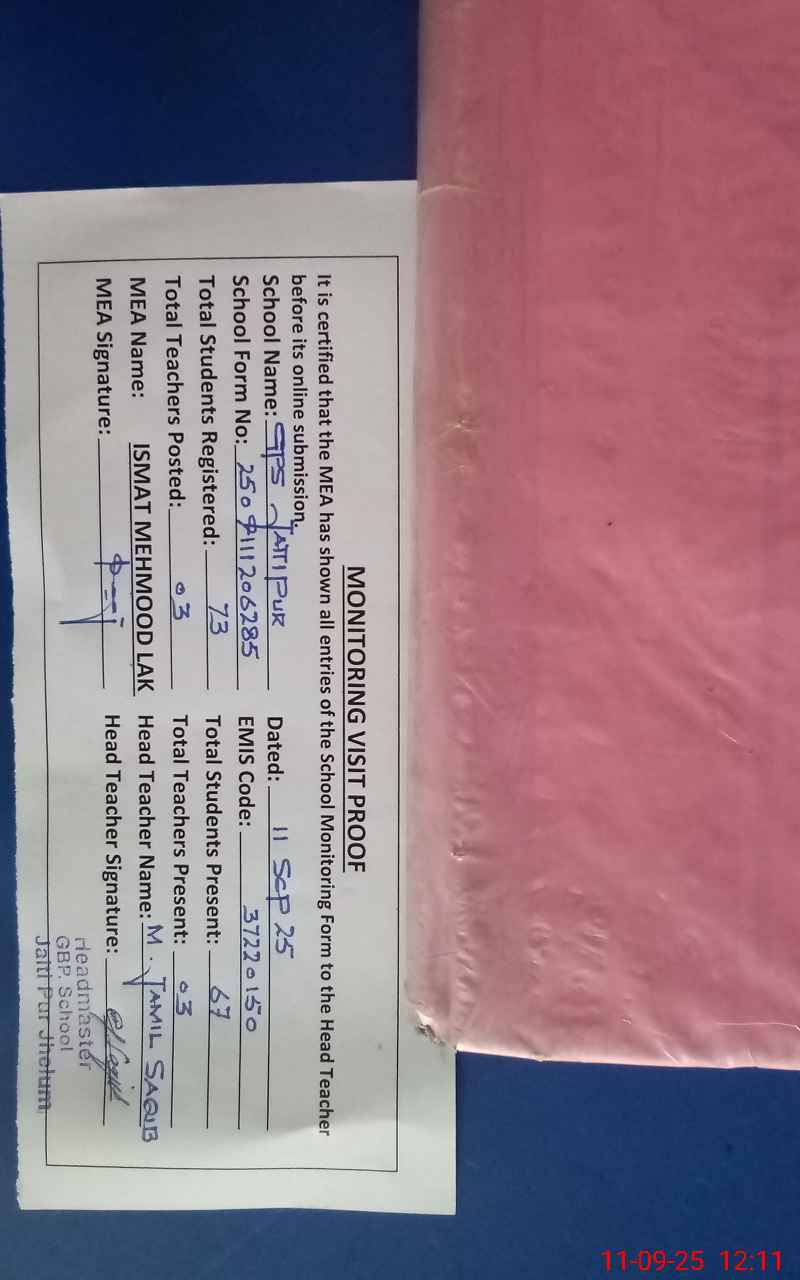 MONITORING VISIT PROOF
It is certified that the MEA has shown all entries of the School Monitoring Form to the Head Teacher
before its online submission.
School Name: GPS JATTI PUR Dated: 11 Sep 25
School Form No: 2509111206285 EMIS Code: 37220150
Total Students Registered: 73 Total Students Present: 67
Total Teachers Posted: 03 Total Teachers Present: 03
MEA Name: ISMAT MEHMOOD LAK Head Teacher Name: M. JAMIL SAQIB
MEA Signature: Head Teacher Signature:
Headmaster
GBP. School
Jatti Pur Jhelum
11-09-25 12:11